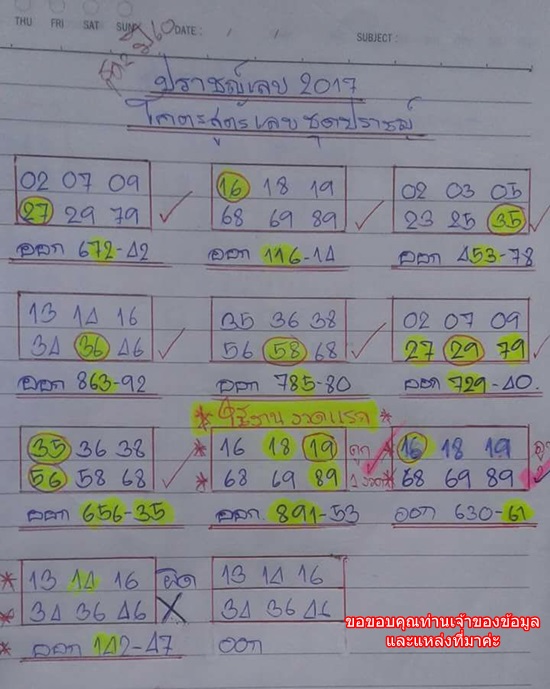 THU FRI SAT SUN DATE: / / SUBJECT:
ปราชญ์เลข 2017
โคตะสูตร เลขชุดปราชญ์
02 07 09
27 29 79
ออก 672-42
16 18 19
68 69 89
ออก 116-14
02 03 05
23 25 35
ออก 453-78
13 14 16
34 36 46
ออก 863-92
35 36 38
56 58 68
ออก 785-80
02 07 09
27 29 79
ออก 729-40
35 36 38
56 58 68
ออก 656-35
* ใช้งานงวดแรก *
* 16 18 19
* 68 69 89
ออก 891-53
* 16 18 19
* 68 69 89
ออก 630-61
* 13 14 16 ผิด
* 34 36 46 X
* ออก 142-47
13 14 16
34 36 46
ออก
ขอขอบคุณท่านเจ้าของข้อมูล
และแหล่งที่มาค่ะ